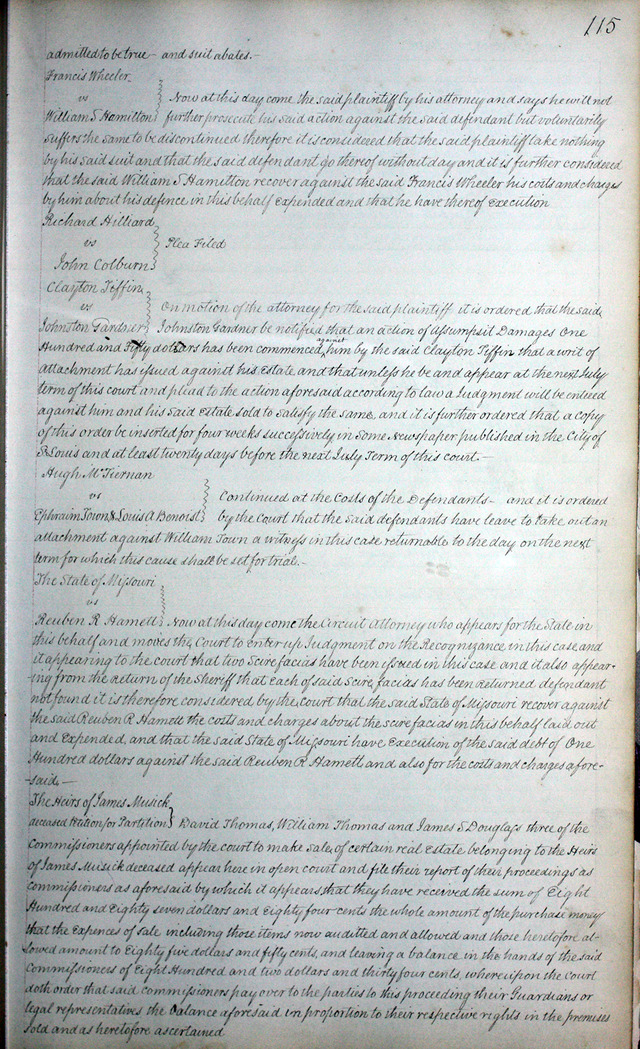 115
admitted to be true - and suit abates. -
Francis Wheeler
vs
William S Hamilton } Now at this day come the said plaintiff by his attorney and says he will not
further prosecute his said action against the said defendant but voluntarily
suffers the same to be discontinued therefore it is considered that the said plaintiff take nothing
by his said suit and that the said defendant go thereof without day and it is further considered
that the said William S Hamilton recover against the said Francis Wheeler his costs and charges
by him about his defence in this behalf Expended and that he have thereof Execution
Richard Hilliard
vs } Plea Filed
John Colburn
Clayton Tiffin
vs } On motion of the attorney for the said plaintiff it is ordered that the said
Johnston Gardner } Johnston Gardner be notified that an action of Assumpsit Damages One
Hundred and Fifty dollars has been commenced against him by the said Clayton Tiffin that a writ of
attachment has issued against his Estate and that unless he be and appear at the next July
term of this court and plead to the action aforesaid according to law a Judgment will be entered
against him and his said Estate sold to satisfy the same, and it is further ordered that a copy
of this order be inserted for four weeks successively in some Newspaper published in the City of
St Louis and at least twenty days before the next July Term of this court. -
Hugh McTiernan
vs } Continued at the Costs of the Defendants - and it is ordered
Ephraim Town & Louis A Benoist } by the Court that the said defendants have leave to take out an
attachment against William Town a witness in this case returnable to the day on the next
term for which this cause shall be set for trial. -
The State of Missouri
vs
Reuben R Hamett } Now at this day come the Circuit Attorney who appears for the State in
this behalf and moves the Court to Enter up Judgment on the Recognizance in this case and
it appearing to the court that two Scire facias have been issued in this case and it also appear-
-ing from the Return of the Sheriff that Each of said Scire facias has been Returned defendant
not found it is therefore considered by the court that the said State of Missouri recover against
the said Reuben R. Hamett the costs and charges about the scire facias in this behalf laid out
and Expended, and that the said State of Missouri have Execution of the said debt of One
Hundred dollars against the said Reuben R. Hamett and also for the costs and charges afore-
-said. -
The Heirs of James Musick
deceased Petition for Partition } David Thomas, William Thomas and James S Douglass three of the
Commissioners appointed by the court to make Sale, of certain real Estate belonging to the Heirs
of James Musick deceased appear here in open court and file their report of their proceedings as
commissioners as aforesaid by which it appears that they have received the sum of Eight
Hundred and Eighty seven dollars and Eighty four cents the whole amount of the purchase money
that the Expences of sale including those items now audited and allowed and those heretofore al-
lowed amount to Eighty five dollars and fifty cents, and leaving a balance in the hands of the said
Commissioners of Eight Hundred and two dollars and thirty four cents, whereupon the Court
doth order that said commissioners pay over to the parties to this proceeding their Guardians or
legal representatives the balance aforesaid in proportion to their respective rights in the premises
sold and as heretofore ascertained